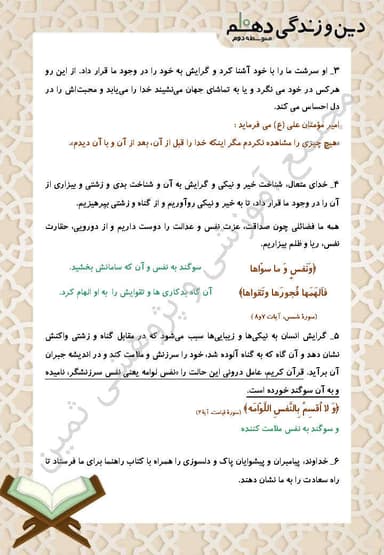 دین و زندگی دهم
متوسطه دوم
۳_ او سرشت ما را با خود آشنا کرد و گرایش به خود را در وجود ما قرار داد. از این رو
هرکس در خود می نگرد و یا به تماشای جهان می‌نشیند خدا را می‌یابد و محبت‌اش را در
دل احساس می کند.
امیر مؤمنان علی (ع) می فرماید :
«هیچ چیزی را مشاهده نکردم مگر اینکه خدا را قبل از آن، بعد از آن و با آن دیدم».
۴_ خدای متعال، شناخت خیر و نیکی و گرایش به آن و شناخت بدی و زشتی و بیزاری از
آن را در وجود ما قرار داد، تا به خیر و نیکی روآوریم و از گناه و زشتی بپرهیزیم.
همه ما فضائلی چون صداقت، عزت نفس و عدالت را دوست داریم و از دورویی، حقارت
نفس، ریا و ظلم بیزاریم.
﴿وَنَفسٍ وَ ما سوّاها سوگند به نفس و آن که سامانش بخشید.
فَاَلهَمَها فُجورَها وَتَقواها﴾ آن گاه بدکاری ها و تقوایش را به او الهام کرد.
(سورهٔ شمس، آیات ۷ و ۸)
۵_ گرایش انسان به نیکی‌ها و زیبایی‌ها سبب می‌شود که در مقابل گناه و زشتی واکنش
نشان دهد و آن گاه که به گناه آلوده شد، خود را سرزنش و ملامت کند و در اندیشه جبران
آن برآید. قرآن کریم، عامل درونی این حالت را «نفس لوامه یعنی نفس سرزنشگر، نامیده
و به آن سوگند خورده است.
﴿وَ لا اُقسِمُ بِالنَّفسِ اللَّوّامَه﴾ (سورهٔ قیامت، آیهٔ ۲)
و سوگند به نفس ملامت کننده
۶_ خداوند، پیامبران و پیشوایان پاک و دلسوزی را همراه با کتاب راهنما برای ما فرستاد تا
راه سعادت را به ما نشان دهند.
مجتمع آموزشی و پژوهشی ثمین